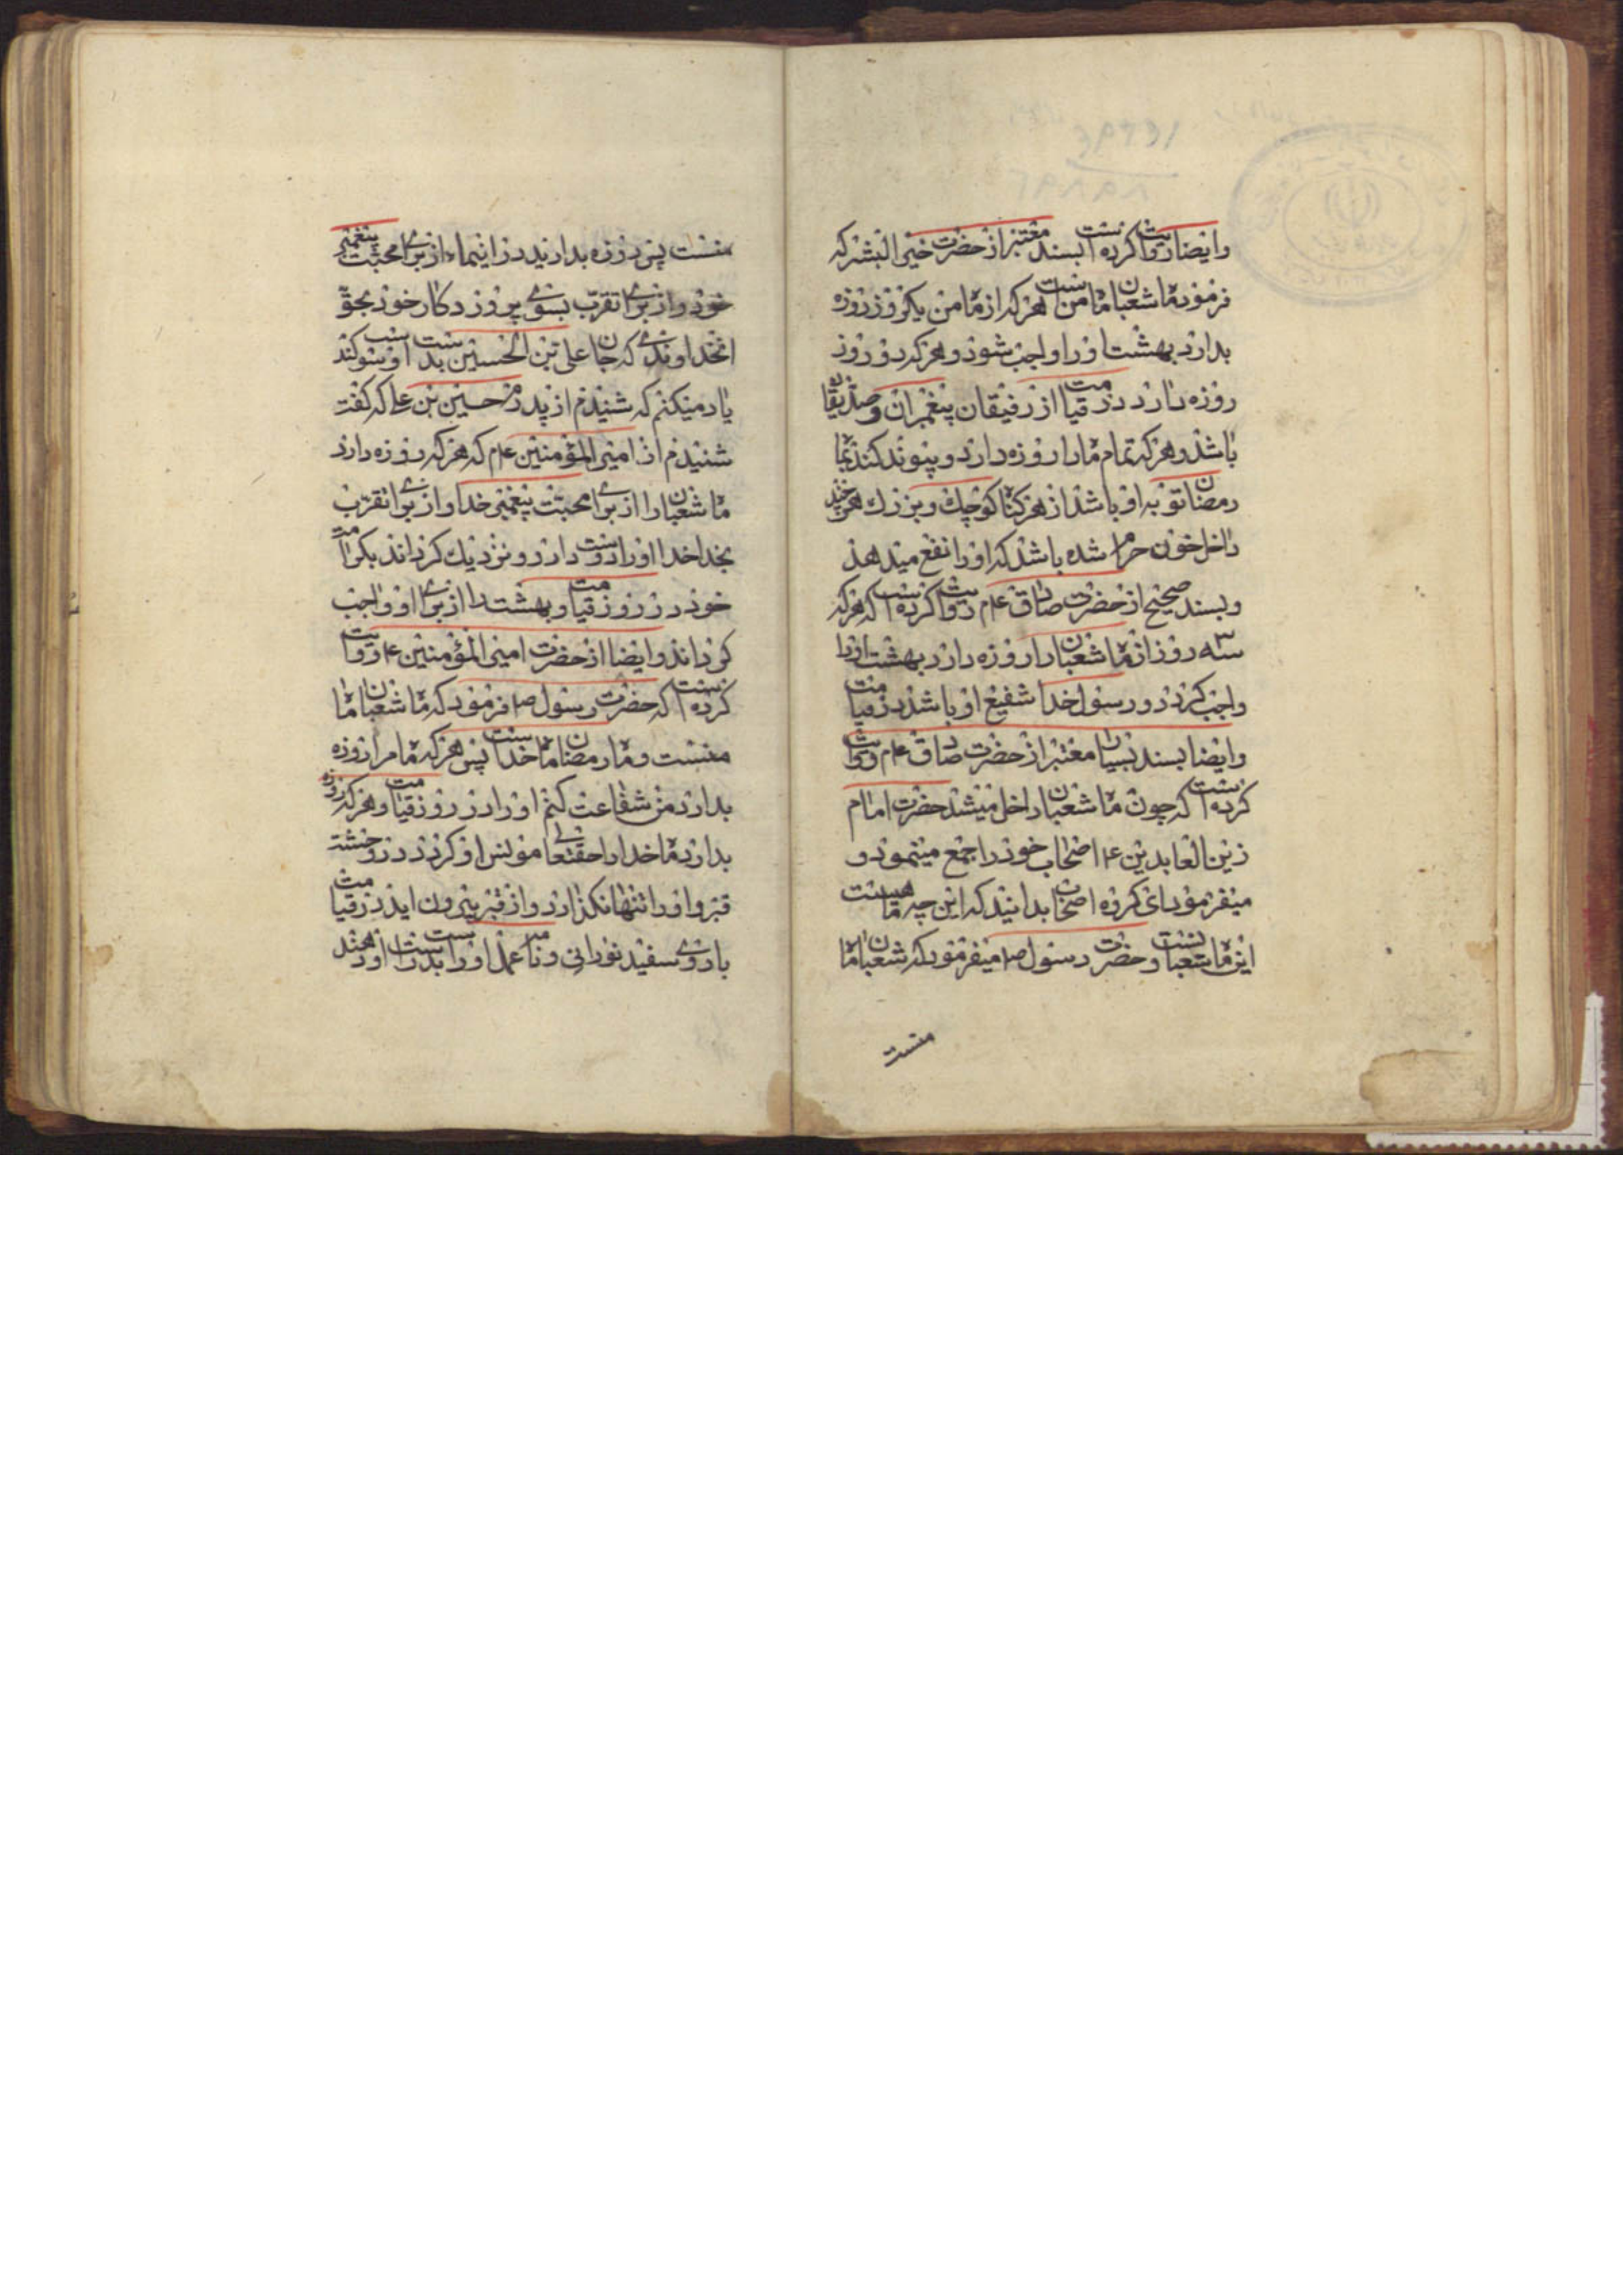 وایضا روایت کرده است بسند معتبر از حضرت خیر البشر که
فرمود ماه شعبان ماه من است هر که از ماه من یکروز روزه
بدارد بهشت او را واجب شود و هر که دو روز
روزه دارد در قیامت از رفیقان پیغمبران و صدیقان
باشد و هر که تمام ماه را روزه دارد و پیوند کند بماه
رمضان توبه او باشد از هر گناه کوچک و بزرگ هر چند
داخل خون حرام شده باشد که او را نفع میدهد
و بسند صحیح از حضرت صادق ع م روایت کرده است که هر که
سه روز از ماه شعبان را روزه دارد بهشت او را
واجب گردد و رسول خدا شفیع او باشد در قیامت
وایضا بسند بسیار معتبر از حضرت صادق ع م روایت
کرده است که چون ماه شعبان داخل میشد حضرت امام
زین العابدین ع اصحاب خود را جمع مینمود و
میفرمود ای گروه اصحاب بدانید که این چه ماهیست
این ماه شعبانست و حضرت رسول ص میفرمود که شعبان ماه
منست
منست پس روزه بدارید در اینماه از برای محبت پیغمبر
خود و از برای تقرب بسوی پروردکار خود بحق
انخداوندی که جان علی بن الحسین بدست اوست سوکند
یاد میکنم که شنیدم از پدرم حسین بن علی که کفت
شنیدم از امیر المؤمنین ع م که هر که روزه دارد
ماه شعبان را از برای محبت پیغمبر خدا و از برای تقرب
بخدا خدا او را دوست دارد و نزدیک کرداند بکرامت
خود در روز قیامت و بهشت را از برای او واجب
کرداند وایضا از حضرت امیر المؤمنین ع روایت
کرده است که حضرت رسول ص فرمود که ماه شعبان ماه
منست و ماه رمضان ماه خداست پس هر که ماه مرا روزه
بدارد من شفاعت کنم او را در روز قیامت و هر که روزه
بدارد ماه خدا را حقتعالی مونس او کردد در وحشت
قبر و او را تنها نکذارد و از قبر بیرون اید در قیامت
با روی سفید نورانی و نامه عمل او را بدست راست او دهند